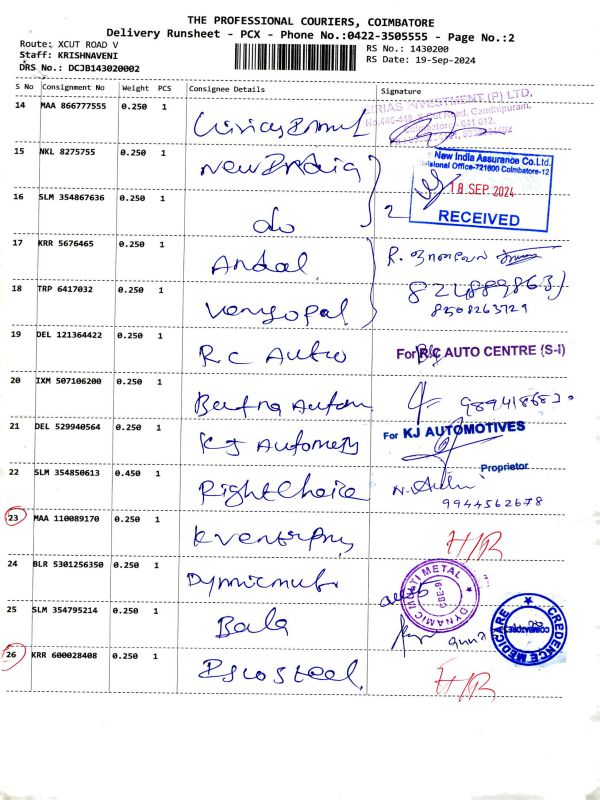 THE PROFESSIONAL COURIERS, COIMBATORE
Delivery Runsheet - PCX - Phone No.:0422-3505555 - Page No.:2
Route: XCUT ROAD V
Staff: KRISHNAVENI
DRS No.: DCJB143020002
RS No.: 1430200
RS Date: 19-Sep-2024
S No Consignment No Weight PCS Consignee Details Signature
14 MAA 866777555 0.250 1
INVESTMENT (P) LTD,
15 NKL 8275755 0.250 1 New India
New India Assurance Co.Ltd.
Divisional Office-721600 Coimbatore-12
18 SEP 2024
RECEIVED
16 SLM 354867636 0.250 1 do 2
17 KRR 5676465 0.250 1 Andal
18 TRP 6417032 0.250 1 Venugopal
8508263129
19 DEL 121364422 0.250 1 R.C Auto For R.C AUTO CENTRE (S-I)
20 IXM 507106200 0.250 1
21 DEL 529940564 0.250 1 KJ
For KJ AUTOMOTIVES
Proprietor
22 SLM 354850613 0.450 1 Right Choice
9944562678
23 MAA 110089170 0.250 1 H/R
24 BLR 5301256350 0.250 1
DYNAMIC MULTI METAL
CBE-9
25 SLM 354795214 0.250 1 Bala
CREDENCE MEDICARE
COIMBATORE
26 KRR 600028408 0.250 1 H/R